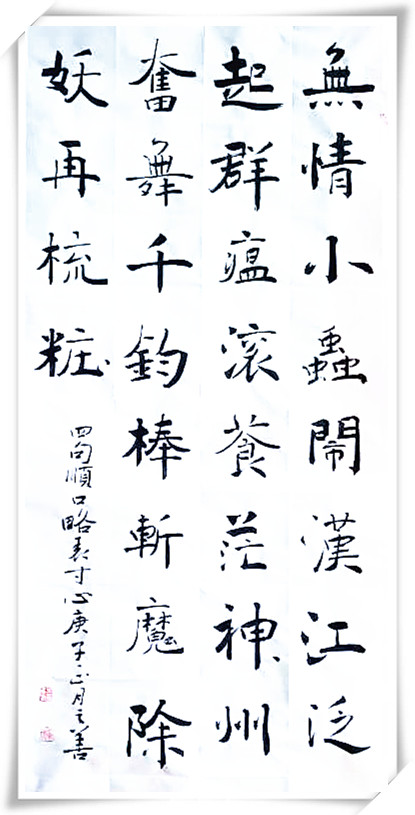 無情小蟲鬧漢江泛
起群瘟滚蒼茫神州
奮舞千鈞棒斬魔除
妖再梳粧
四句順口略表寸心庚子正月之善